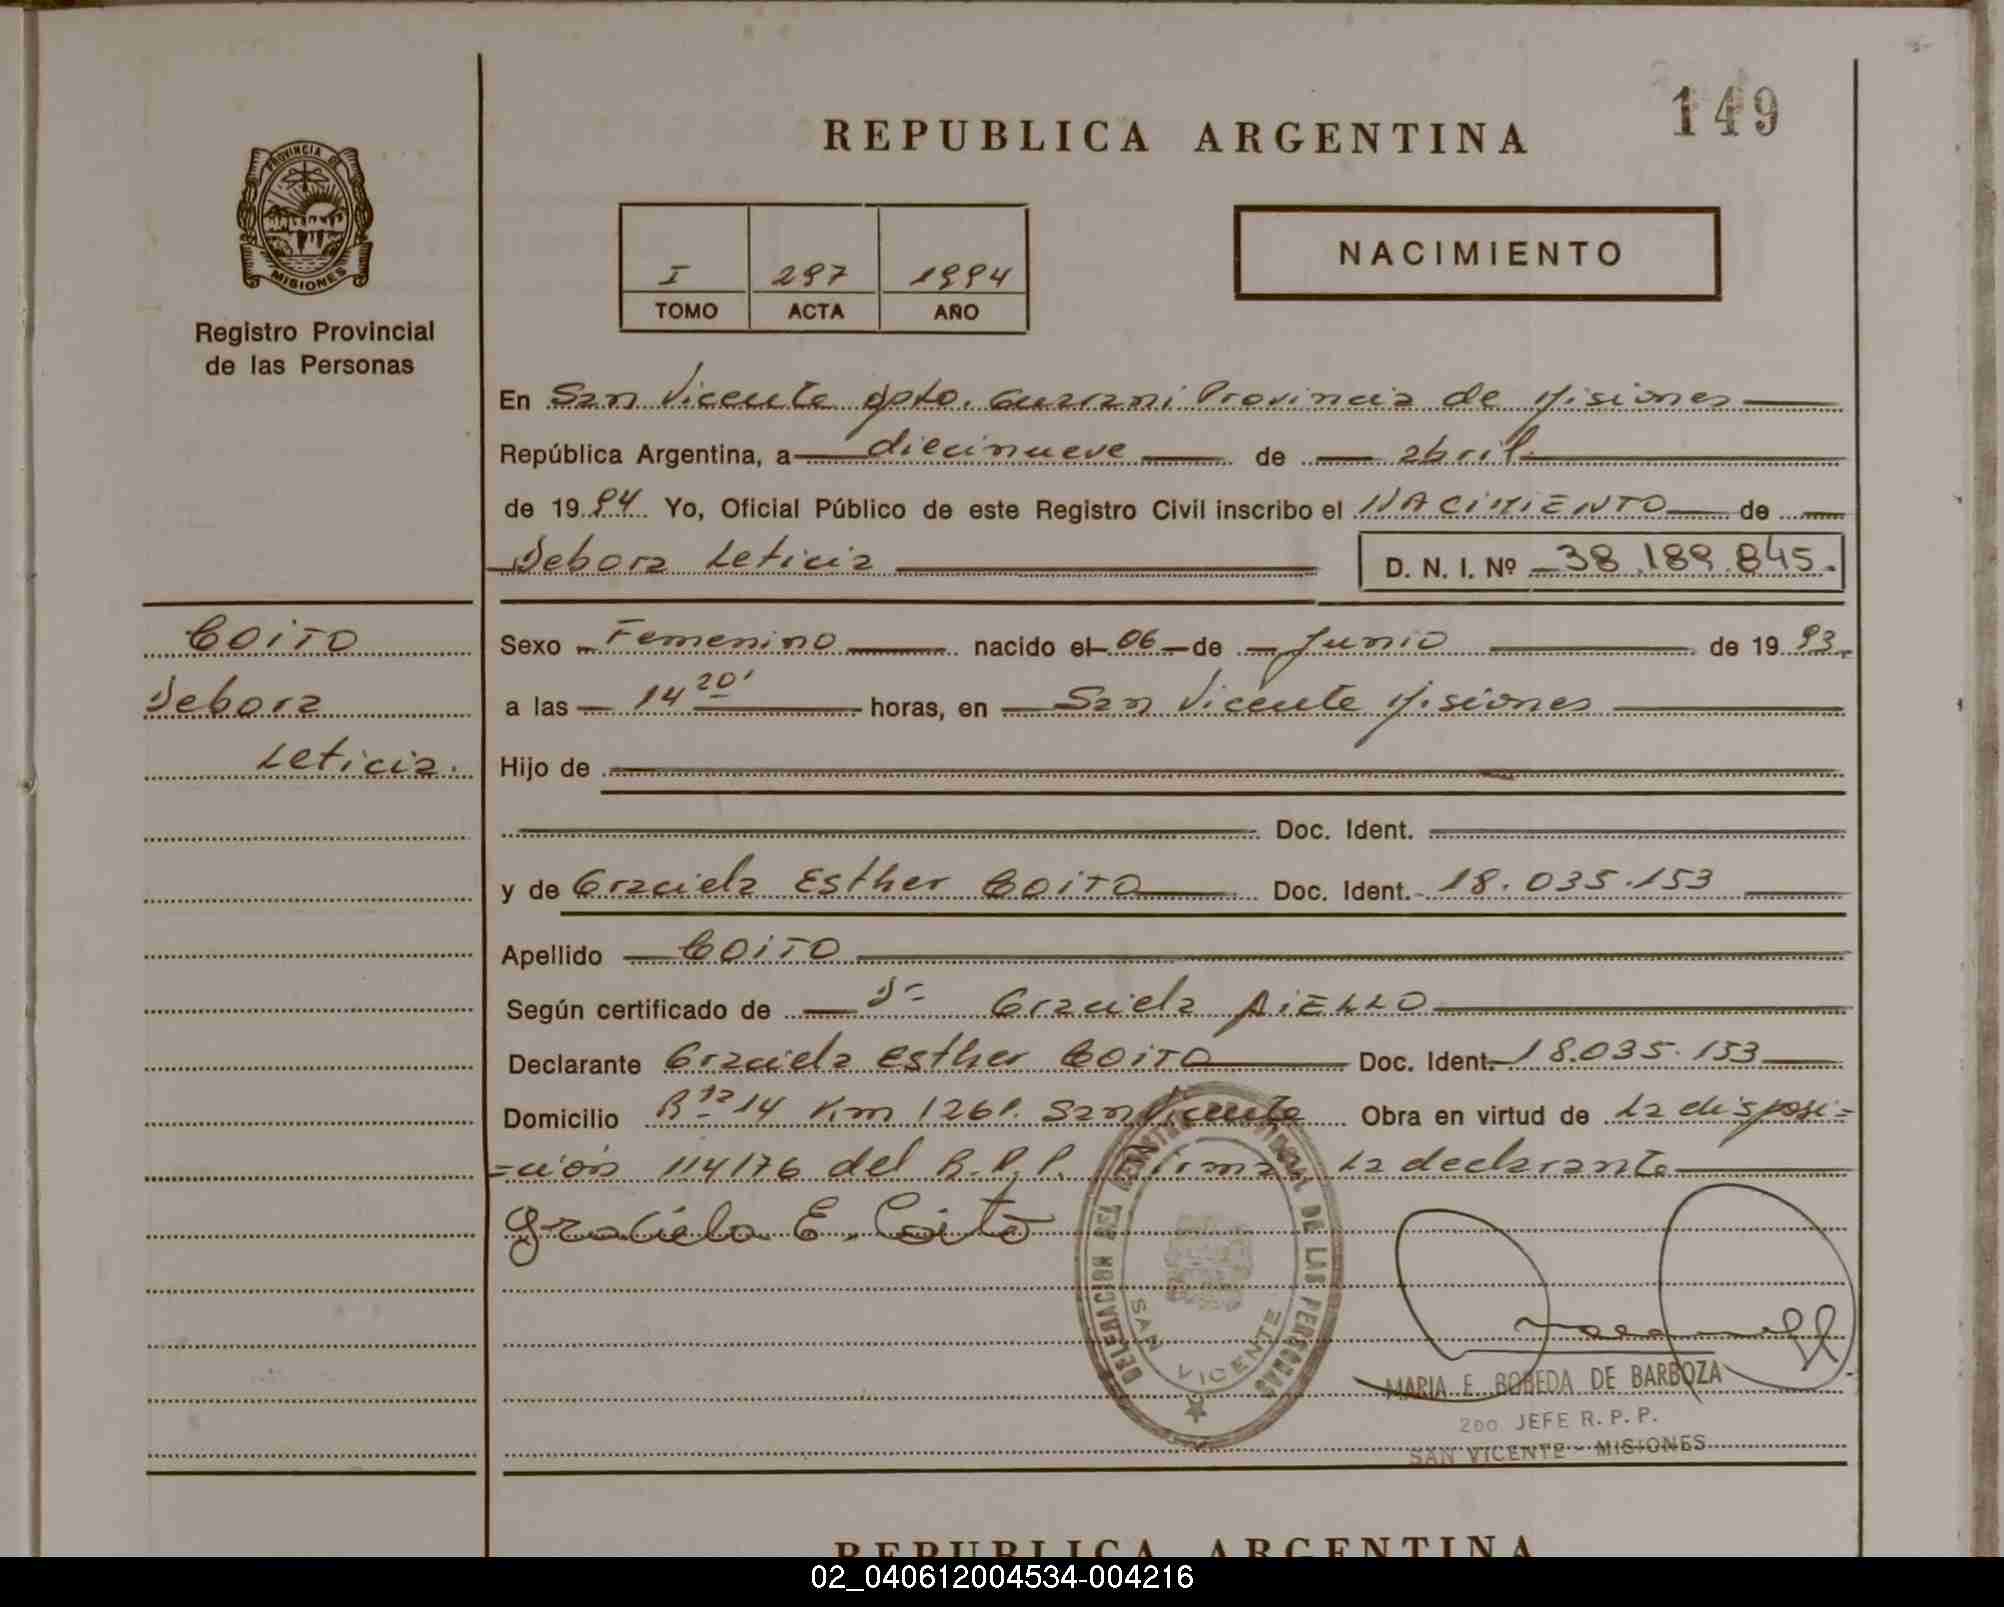 149
REPUBLICA ARGENTINA
PROVINCIA DE
MISIONES
Registro Provincial
de las Personas
NACIMIENTO
I 297 1994
TOMO ACTA AÑO
En San Vicente dpto. Guarani Provincia de Misiones
República Argentina, a diecinueve de abril
de 1994 Yo, Oficial Público de este Registro Civil inscribo el NACIMIENTO de
Debora Leticia D. N. I. Nº 38.189.845.
COITO
Debora
Leticia.
Sexo Femenino nacido el 06 de Junio de 1993
a las 14 20' horas, en San Vicente Misiones
Hijo de
Doc. Ident.
y de Graciela Esther COITO Doc. Ident. 18.035.153
Apellido COITO
Según certificado de Graciela AIELLO
Declarante Graciela Esther COITO Doc. Ident. 18.035.153
Domicilio Rta 14 Km 1261. San Vicente Obra en virtud de la disposi=
=ción 114/76 del R.P.P. Firma la declarante
Graciela E. Coito
DELEGACION DEL REGISTRO PROVINCIAL DE LAS PERSONAS
SAN VICENTE
MARIA E. BOBEDA DE BARBOZA
2DO JEFE R. P. P.
SAN VICENTE - MISIONES
REPUBLICA ARGENTINA
02_040612004534-004216